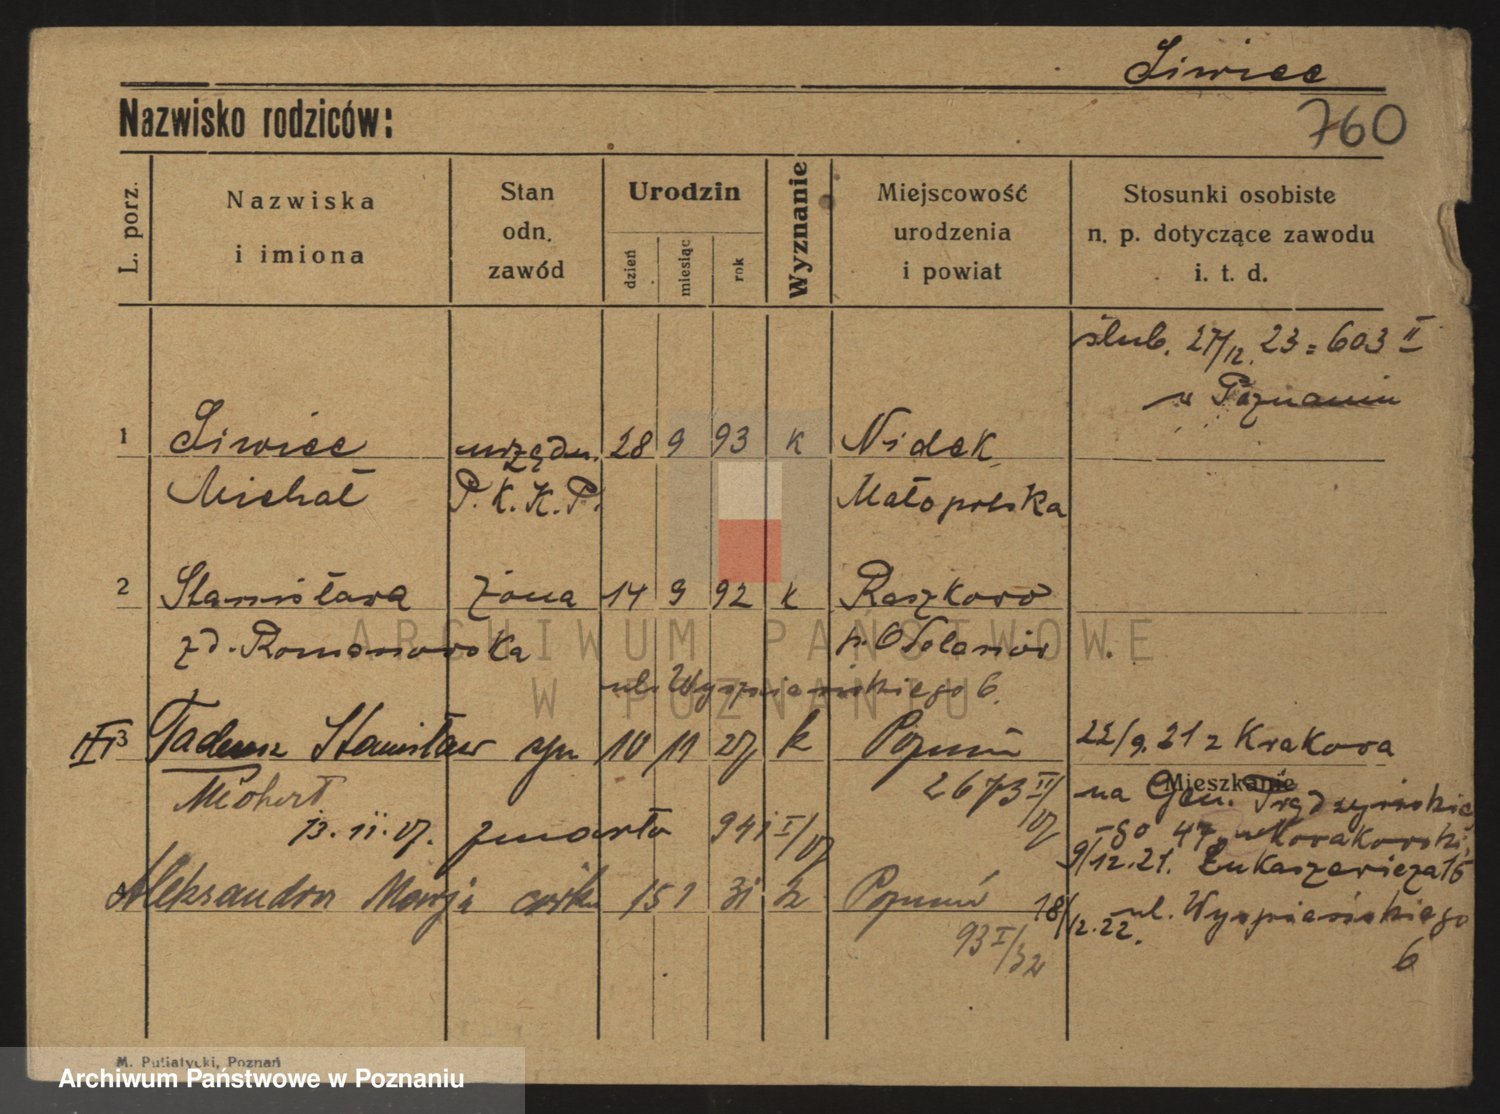 Siwiec
760
Nazwisko rodziców:
L. porz.
Nazwiska
i imiona
Stan
odn.
zawód
Urodzin
dzień
miesiąc
rok
Wyznanie
Miejscowość
urodzenia
i powiat
Stosunki osobiste
n. p. dotyczące zawodu
i. t. d.
ślub. 27/12. 23 = 603 II
w Poznaniu
1 Siwiec urzędn. 28 9 93 k Nidek
Michał P. K. K. P. Małopolska
2 Stanisława żona 14 9 92 k Raszków
zd. Romanowska p. Odolanów
ul. Wyspiańskiego 6.
III 3 Tadeusz Stanisław syn 10 11 27 k Poznań
22/9. 21 z Krakowa
2673 II/27
Mieszkanie
na Gen. Prądzyńskie
go 47
13. 11. 27. zmarło 941 I/27
9/12. 21. Łukaszewicza 15
4 Aleksandra Marja córka 15 1 31 k Poznań
93 I/32
18/12. 22. ul. Wyspiańskiego
6
M. Putiatycki, Poznań
ARCHIWUM PAŃSTWOWE
W POZNANIU
Archiwum Państwowe w Poznaniu